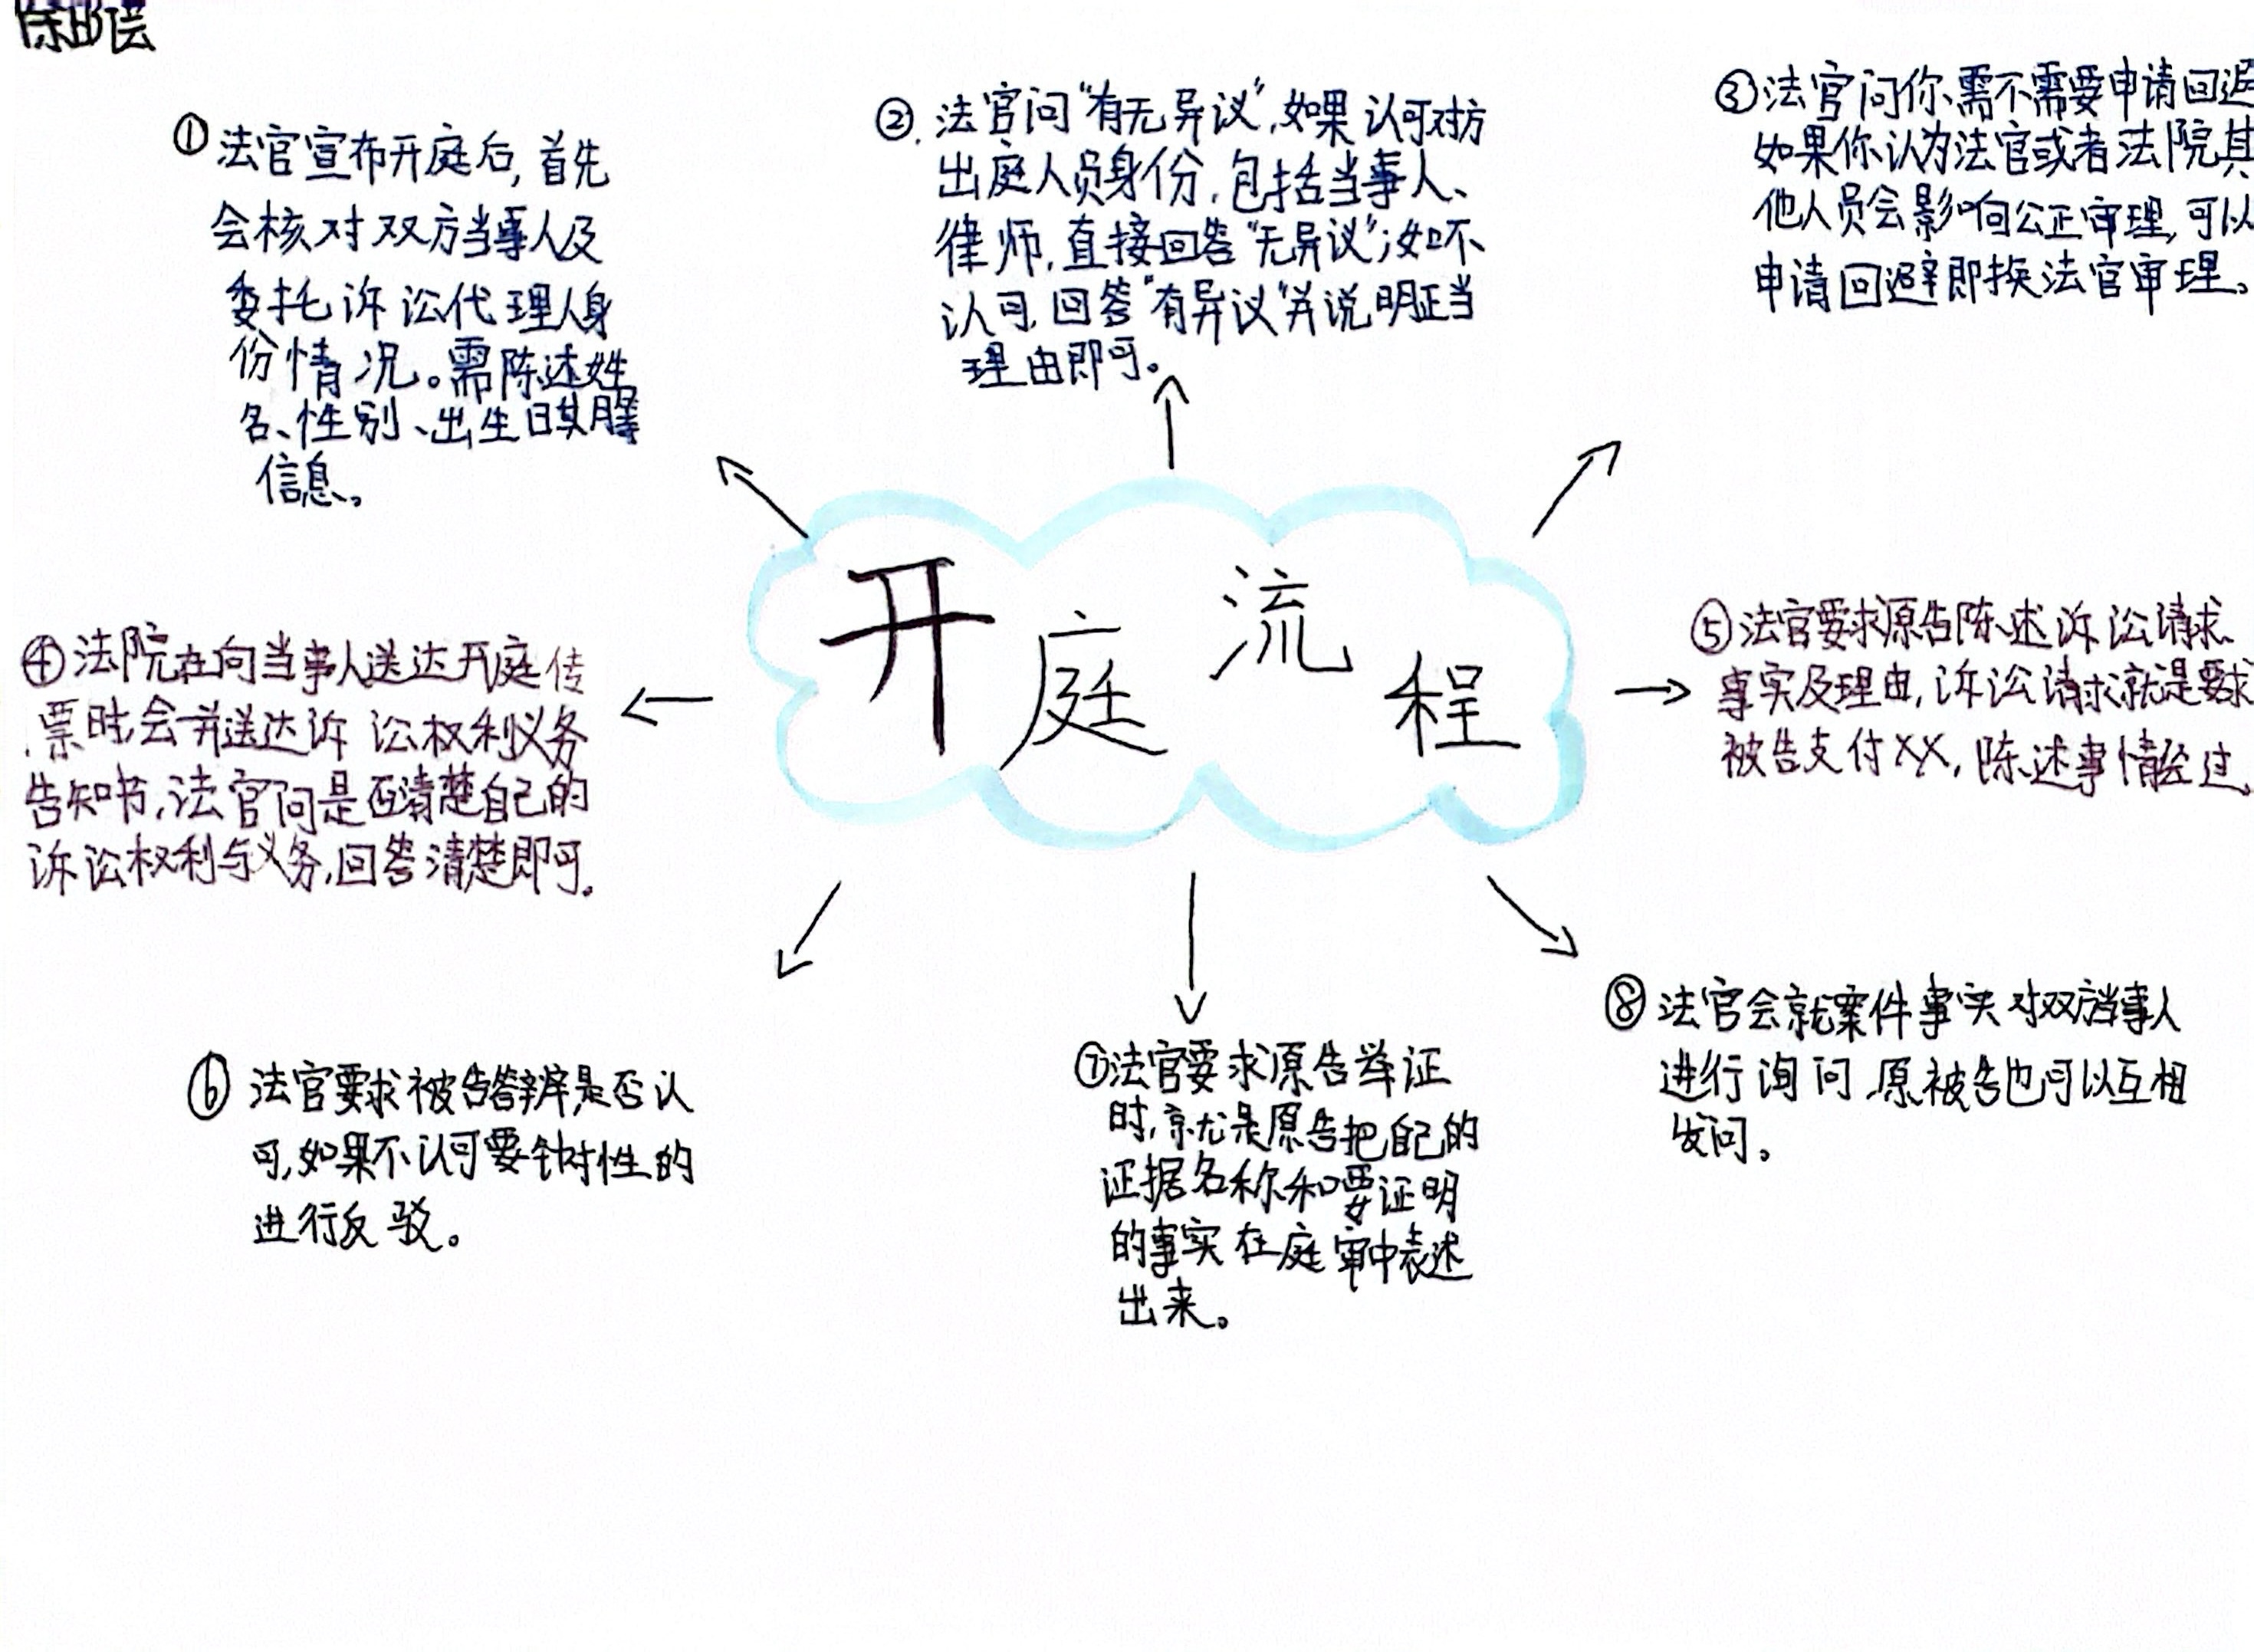 ①法官宣布开庭后,首先
会核对双方当事人及
委托诉讼代理人身
份情况。需陈述姓
名、性别、出生日期等
信息。
②.法官问"有无异议",如果认可对方
出庭人员身份,包括当事人、
律师,直接回答"无异议";如不
认可,回答"有异议"并说明正当
理由即可。
③法官问你需不需要申请回避
如果你认为法官或者法院其
他人员会影响公正审理,可以
申请回避即换法官审理。
开庭流程
④法院在向当事人送达开庭传
票时,会一并送达诉讼权利义务
告知书,法官问是否清楚自己的
诉讼权利与义务,回答清楚即可.
⑤法官要求原告陈述诉讼请求、
事实及理由,诉讼请求就是要求
被告支付XX,陈述事情经过.
⑥法官要求被告答辩,是否认
可,如果不认可要针对性的
进行反驳。
⑦法官要求原告举证
时,就是原告把自己的
证据名称和要证明
的事实在庭审中表述
出来。
⑧法官会就案件事实对双方当事人
进行询问,原被告也可以互相
发问。